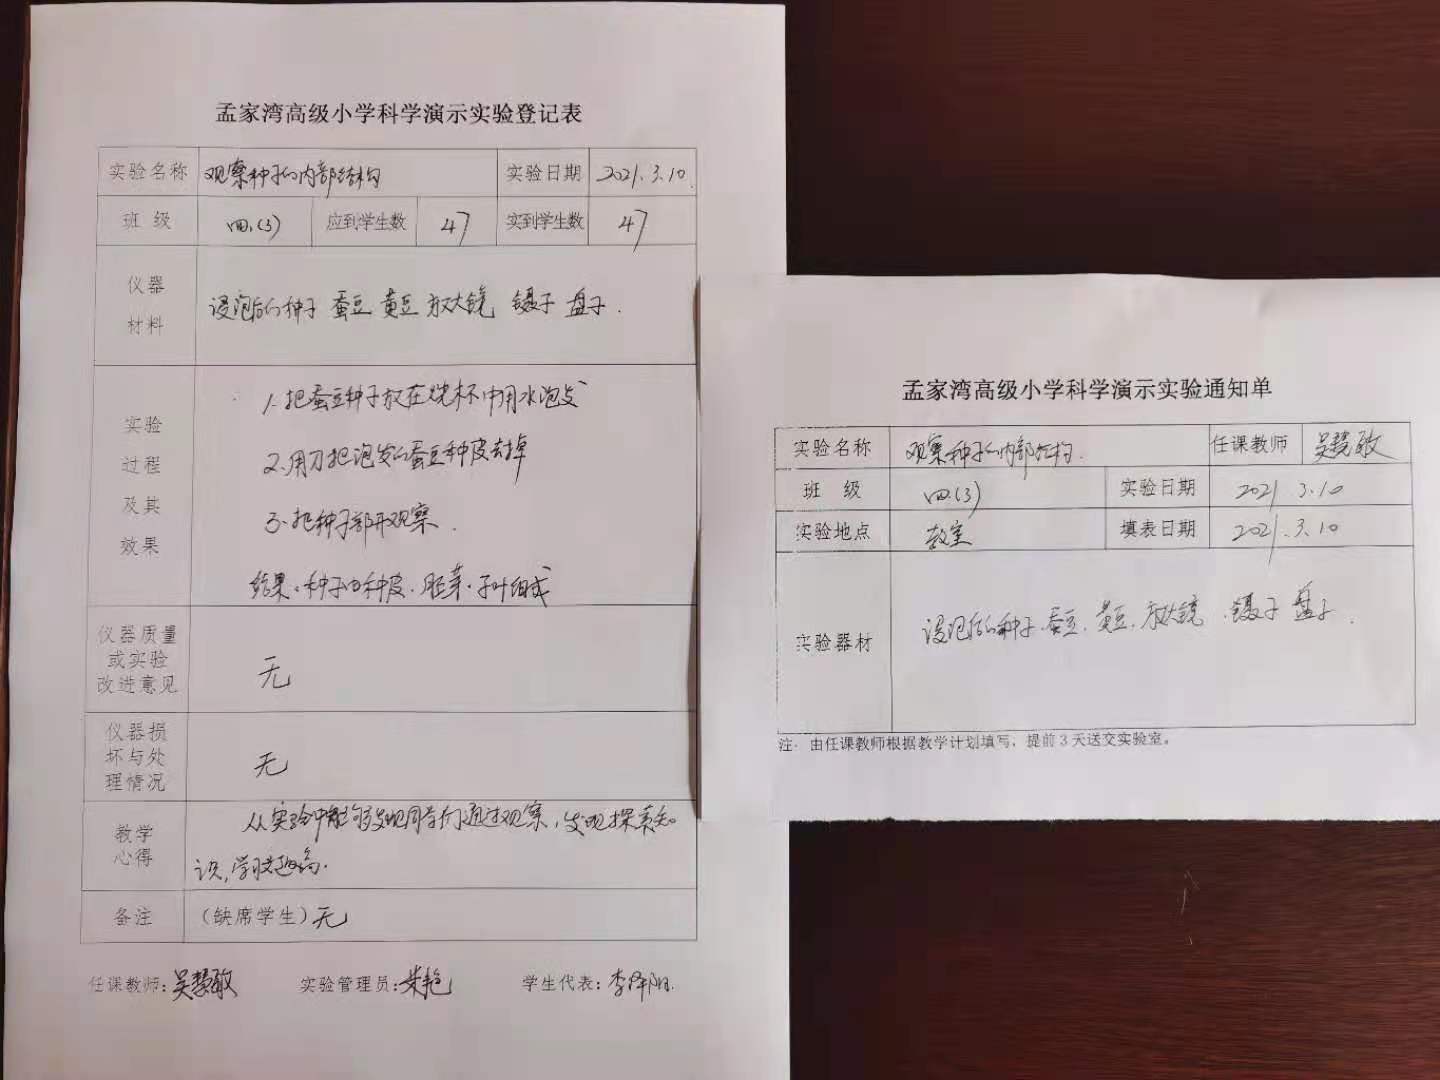 孟家湾高级小学科学演示实验登记表
实验名称 观察种子的内部结构 实验日期 2021.3.10.
班 级 四.(3) 应到学生数 47 实到学生数 47
仪器
材料
浸泡后的种子 蚕豆 黄豆 放大镜 镊子 盘子.
实验
过程
及其
效果
1.把蚕豆种子放在烧杯中用水泡发
2.用刀把泡发的蚕豆种皮去掉
3.把种子掰开观察.
结果:种子由种皮.胚芽.子叶组成
仪器质量
或实验
改进意见
无
仪器损
坏与处
理情况
无
教学
心得
从实验中能够发现同学们通过观察,发现探索知
识,学习兴趣高.
备注 (缺席学生)无
任课教师:吴慧敏 实验管理员:朱艳 学生代表:李泽阳.
孟家湾高级小学科学演示实验通知单
实验名称 观察种子的内部结构. 任课教师 吴慧敏
班 级 四.(3) 实验日期 2021 3.10
实验地点 教室 填表日期 2021.3.10
实验器材 浸泡后的种子.蚕豆.黄豆.放大镜.镊子 盘子.
注:由任课教师根据教学计划填写,提前3天送交实验室。